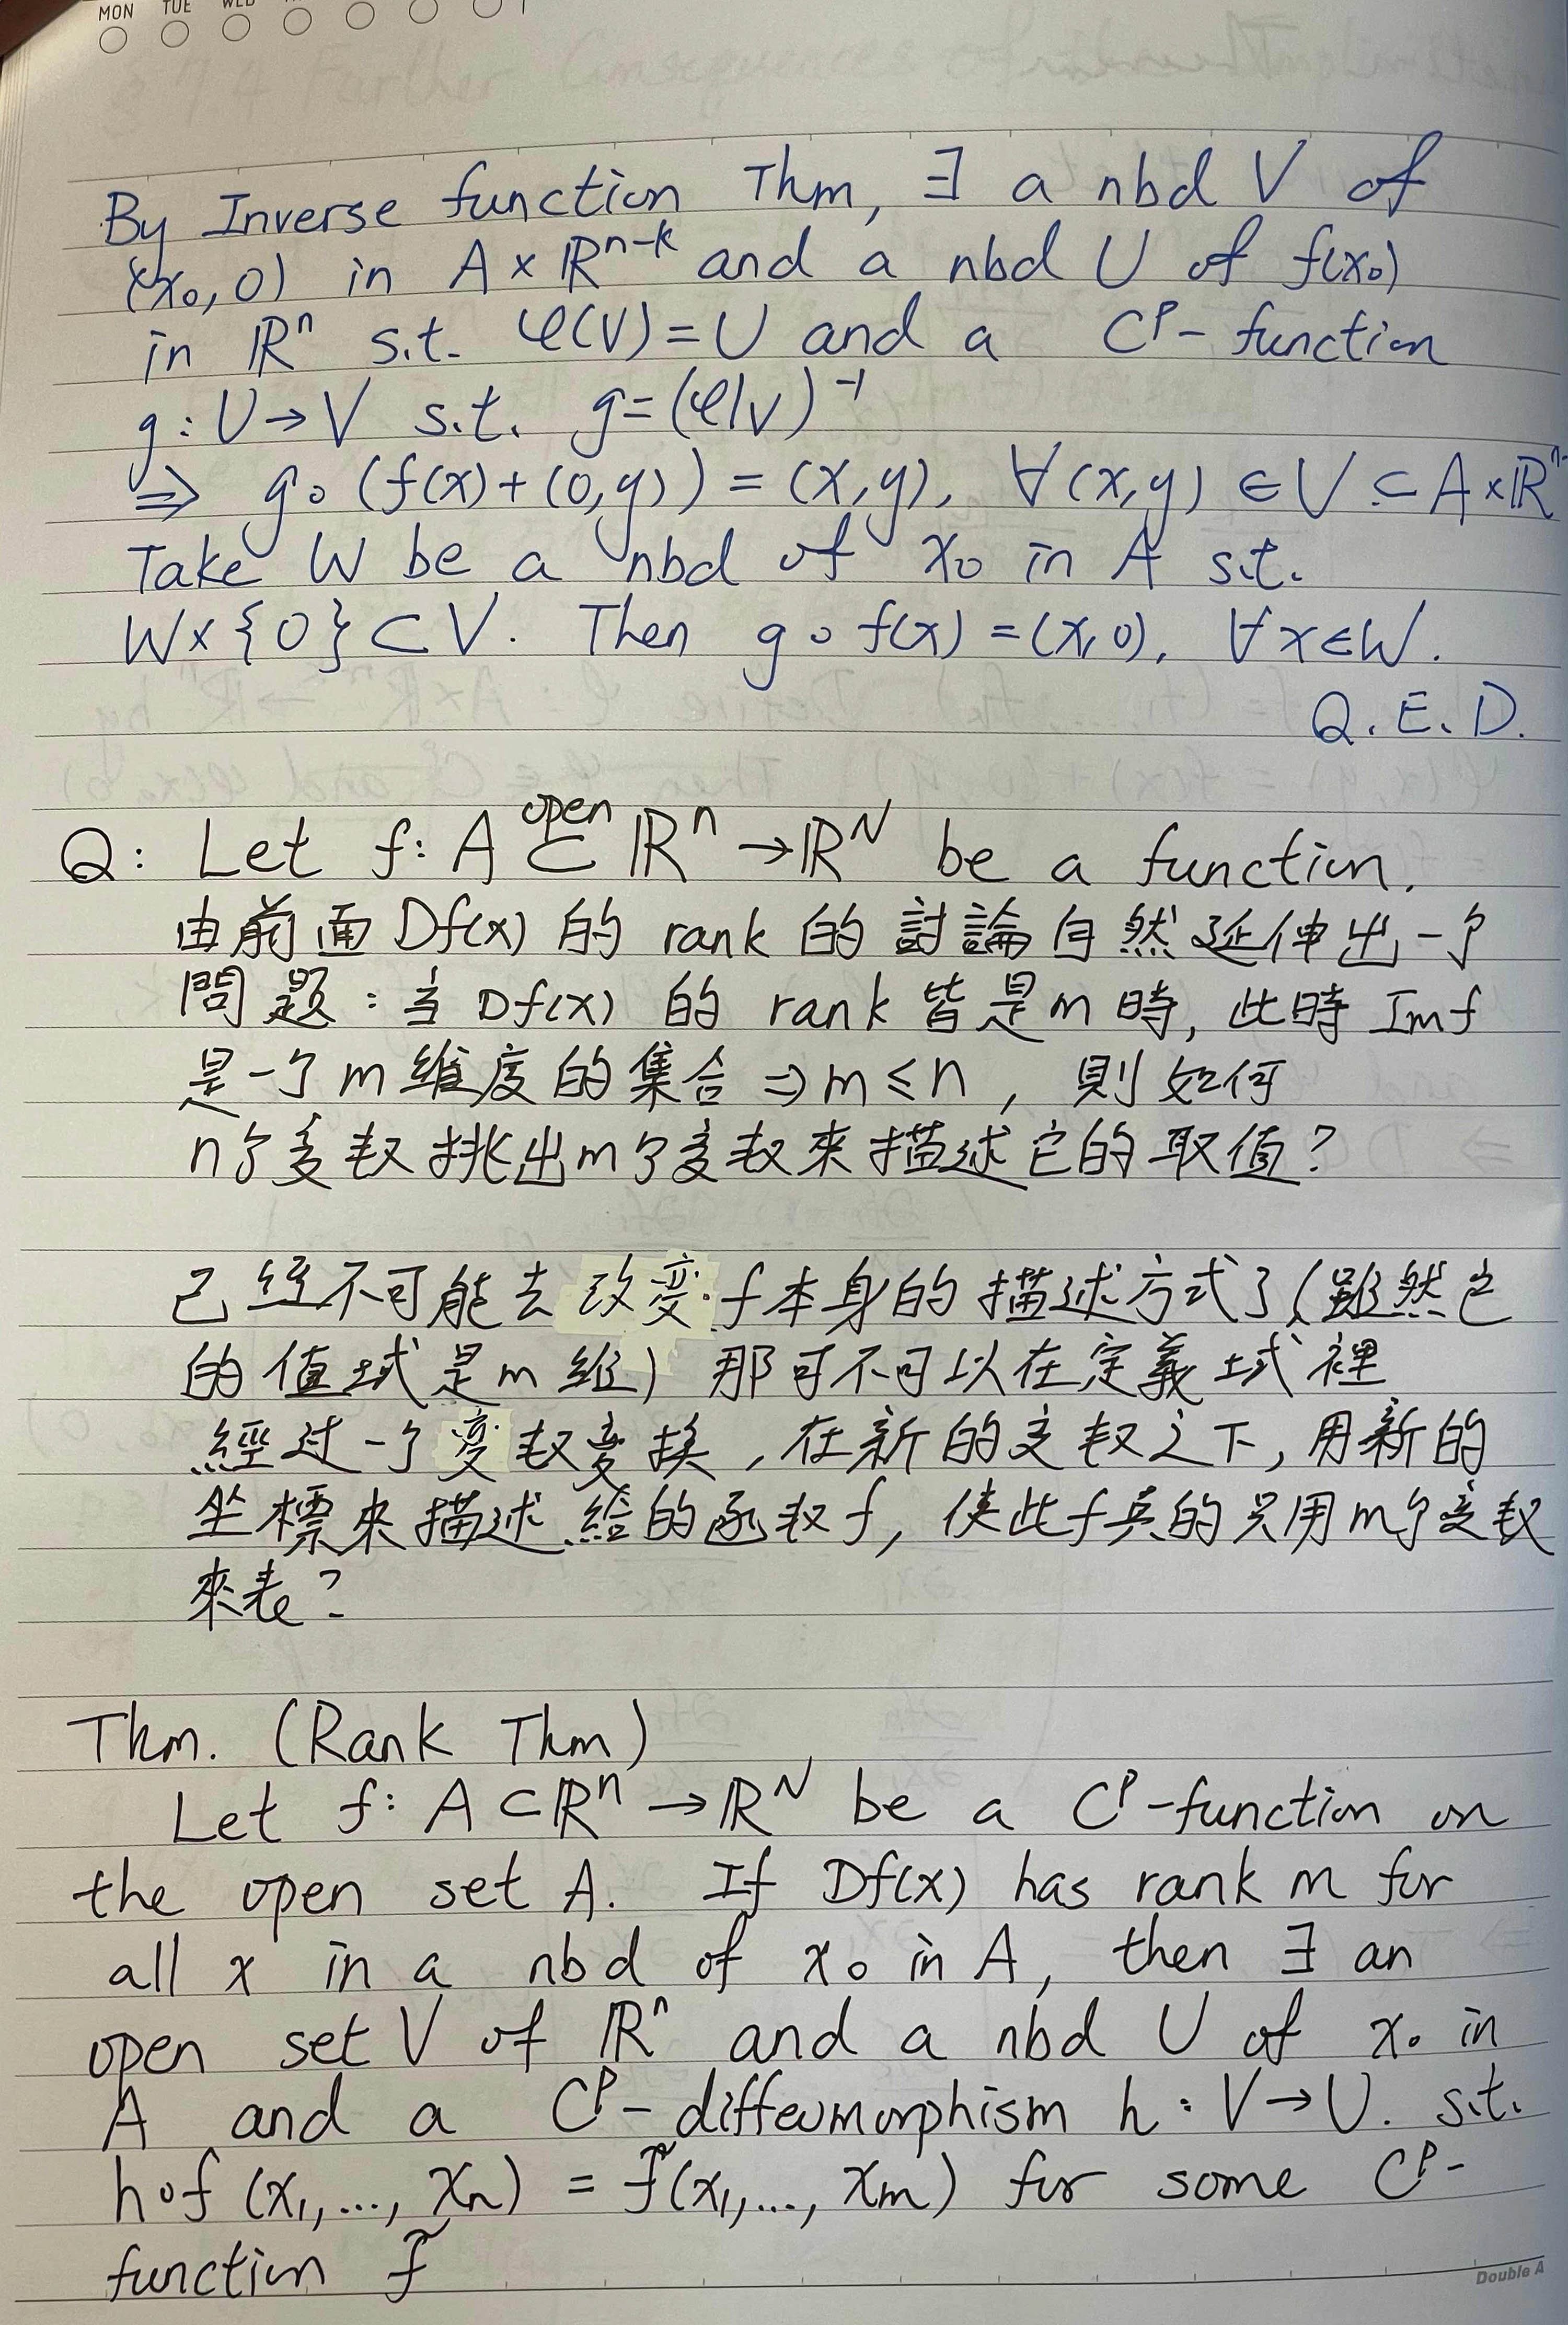 MON TUE WED
By Inverse function Thm, ∃ a nbd V of
(x₀, 0) in A × ℝⁿ⁻ᵏ and a nbd U of f(x₀)
in ℝⁿ s.t. φ(V) = U and a Cᵖ- function
g : U → V s.t. g = (φ|v)⁻¹
⇒ g∘(f(x) + (0,y)) = (x,y), ∀(x,y) ∈ V ⊂ A × ℝⁿ⁻
Take W be a nbd of x₀ in A s.t.
W × {0} ⊂ V. Then g∘f(x) = (x,0), ∀x∈W.
Q.E.D.
Q: Let f: A open⊂ ℝⁿ → ℝᴺ be a function.
由前面 Df(x) 的 rank 的討論自然延伸出一个
問題：当 Df(x) 的 rank 皆是 m 時, 此時 Im f
是一个 m 維度的集合 ⇒ m ≤ n, 則如何
n个変数挑出m个变数來描述它的取值?
已經不可能去改変f本身的描述方式了(雖然它
的值域是m維) 那可不可以在定義域裡
經过一个変数变換, 在新的变数之下, 用新的
坐標來描述給的函数f, 使此f真的只用m个变数
來表?
Thm. (Rank Thm)
Let f: A ⊂ ℝⁿ → ℝᴺ be a Cᵖ-function on
the open set A. If Df(x) has rank m for
all x in a nbd of x₀ in A, then ∃ an
open set V of ℝⁿ and a nbd U of x₀ in
A and a Cᵖ- diffeomorphism h : V → U. s.t.
h∘f (x₁,..., xₙ) = f̃(x₁,..., xₘ) for some Cᵖ-
function f̃
Double A